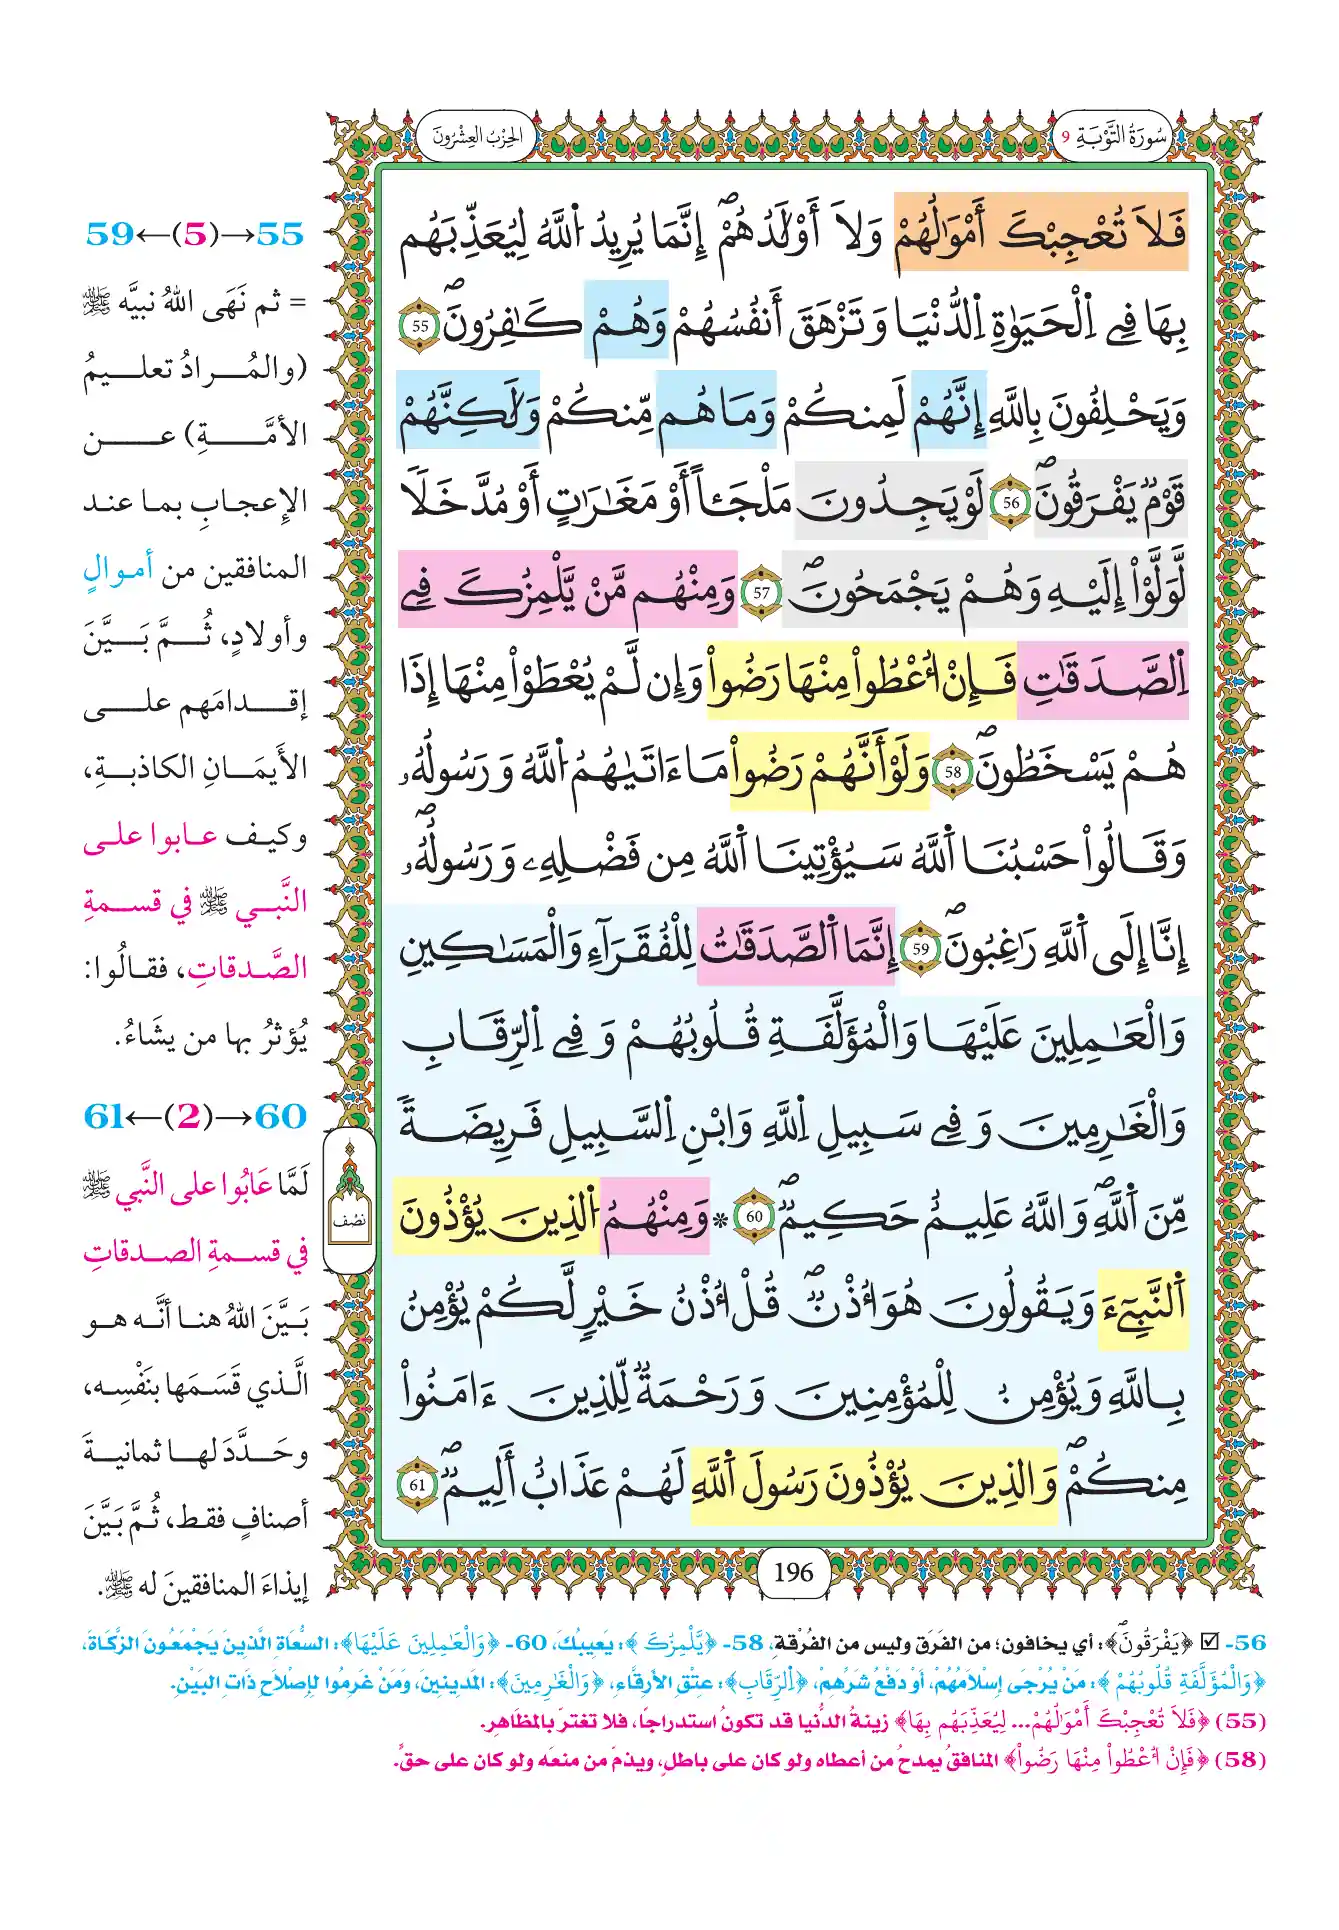 سُورَةُ التَّوْبَةِ 9
الحِزْبُ العِشْرُونَ
فَلَا تُعْجِبْكَ أَمْوَٰلُهُمْ وَلَا أَوْلَٰدُهُمْۖ إِنَّمَا يُرِيدُ اللَّهُ لِيُعَذِّبَهُم
بِهَا فِے اِلْحَيَوٰةِ اِلدُّنْيَا وَتَزْهَقَ أَنفُسُهُمْ وَهُمْ كَٰفِرُونَۖ 55
وَيَحْلِفُونَ بِاللَّهِ إِنَّهُمْ لَمِنكُمْ وَمَا هُم مِّنكُمْ وَلَٰكِنَّهُمْ
قَوْمٌ يَفْرَقُونَۖ 56 لَوْ يَجِدُونَ مَلْجَـًٔا أَوْ مَغَٰرَٰتٍ أَوْ مُدَّخَلًا
لَّوَلَّوْاْ إِلَيْهِ وَهُمْ يَجْمَحُونَۖ 57 وَمِنْهُم مَّنْ يَّلْمِزُكَ فِے
اِلصَّدَقَٰتِ فَإِنْ اُعْطُواْ مِنْهَا رَضُواْ وَإِن لَّمْ يُعْطَوْاْ مِنْهَا إِذَا
هُمْ يَسْخَطُونَۖ 58 وَلَوْ أَنَّهُمْ رَضُواْ مَا ءَاتَيٰهُمُ اللَّهُ وَرَسُولُهُۥ
وَقَالُواْ حَسْبُنَا اَللَّهُ سَيُؤْتِينَا اَللَّهُ مِن فَضْلِهِۦ وَرَسُولُهُۥۖ
إِنَّا إِلَى اَللَّهِ رَٰغِبُونَۖ 59 إِنَّمَا اَلصَّدَقَٰتُ لِلْفُقَرَآءِ وَالْمَسَٰكِينِ
وَالْعَٰمِلِينَ عَلَيْهَا وَالْمُؤَلَّفَةِ قُلُوبُهُمْ وَفِے اِلرِّقَابِ
وَالْغَٰرِمِينَ وَفِے سَبِيلِ اِللَّهِ وَابْنِ اِلسَّبِيلِ فَرِيضَةً
مِّنَ اَللَّهِۖ وَاللَّهُ عَلِيمٌ حَكِيمٌۖ 60 * وَمِنْهُمُ الذِينَ يُؤْذُونَ
اَلنَّبِےٓءَ وَيَقُولُونَ هُوَ أُذْنٌۖ قُلْ اُذْنُ خَيْرٍ لَّكُمْ يُؤْمِنُ
بِاللَّهِ وَيُؤْمِنُ لِلْمُؤْمِنِينَ وَرَحْمَةٌ لِّلذِينَ ءَامَنُواْ
مِنكُمْۖ وَالذِينَ يُؤْذُونَ رَسُولَ اَللَّهِ لَهُمْ عَذَابٌ أَلِيمٌۖ 61
نصف
196
55→(5)←59
= ثم نَهَى اللهُ نبيَّه ﷺ
(والمُرادُ تعليمُ
الأمَّةِ) عن
الإعجابِ بما عند
المنافقين من أموالٍ
وأولادٍ، ثُمَّ بَيَّنَ
إقدامَهم على
الأَيمَانِ الكاذبةِ،
وكيف عابوا على
النَّبي ﷺ في قسمةِ
الصَّدقاتِ، فقالُوا:
يُؤثرُ بها من يشَاءُ.
60→(2)←61
لَمَّا عَابُوا على النَّبي ﷺ
في قسمةِ الصدقاتِ
بَيَّنَ اللهُ هنا أنَّه هو
الَّذي قَسَمَها بنَفْسِه،
وحَدَّدَ لها ثمانيةَ
أصنافٍ فقط، ثُمَّ بَيَّنَ
إيذاءَ المنافقينَ له ﷺ.
56- ☑ ﴿يَفْرَقُونَۖ﴾: أي يخافون؛ من الفَرَق وليس من الفُرْقة، 58- ﴿يَّلْمِزُكَ﴾: يَعيبُكَ، 60- ﴿وَالْعَٰمِلِينَ عَلَيْهَا﴾: السُّعَاةِ الَّذِينَ يَجْمَعُونَ الزَّكَاةَ،
﴿وَالْمُؤَلَّفَةِ قُلُوبُهُمْ﴾: مَنْ يُرْجَى إِسْلَامُهُمْ، أَوْ دَفْعُ شَرِّهِمْ، ﴿اِلرِّقَابِ﴾: عِتْقِ الأَرِقَّاءِ، ﴿وَالْغَٰرِمِينَ﴾: المَدِينِينَ، وَمَنْ غَرِمُوا لِإِصْلَاحِ ذَاتِ البَيْنِ.
(55) ﴿فَلَا تُعْجِبْكَ أَمْوَٰلُهُمْ... لِيُعَذِّبَهُم بِهَا﴾ زينةُ الدُّنيا قد تكونُ استدراجًا، فلا تغترّ بالمظاهرِ.
(58) ﴿فَإِنْ اُعْطُواْ مِنْهَا رَضُواْ﴾ المنافقُ يمدحُ من أعطاه ولو كان على باطلٍ، ويذمّ من منعَه ولو كان على حقٍّ.